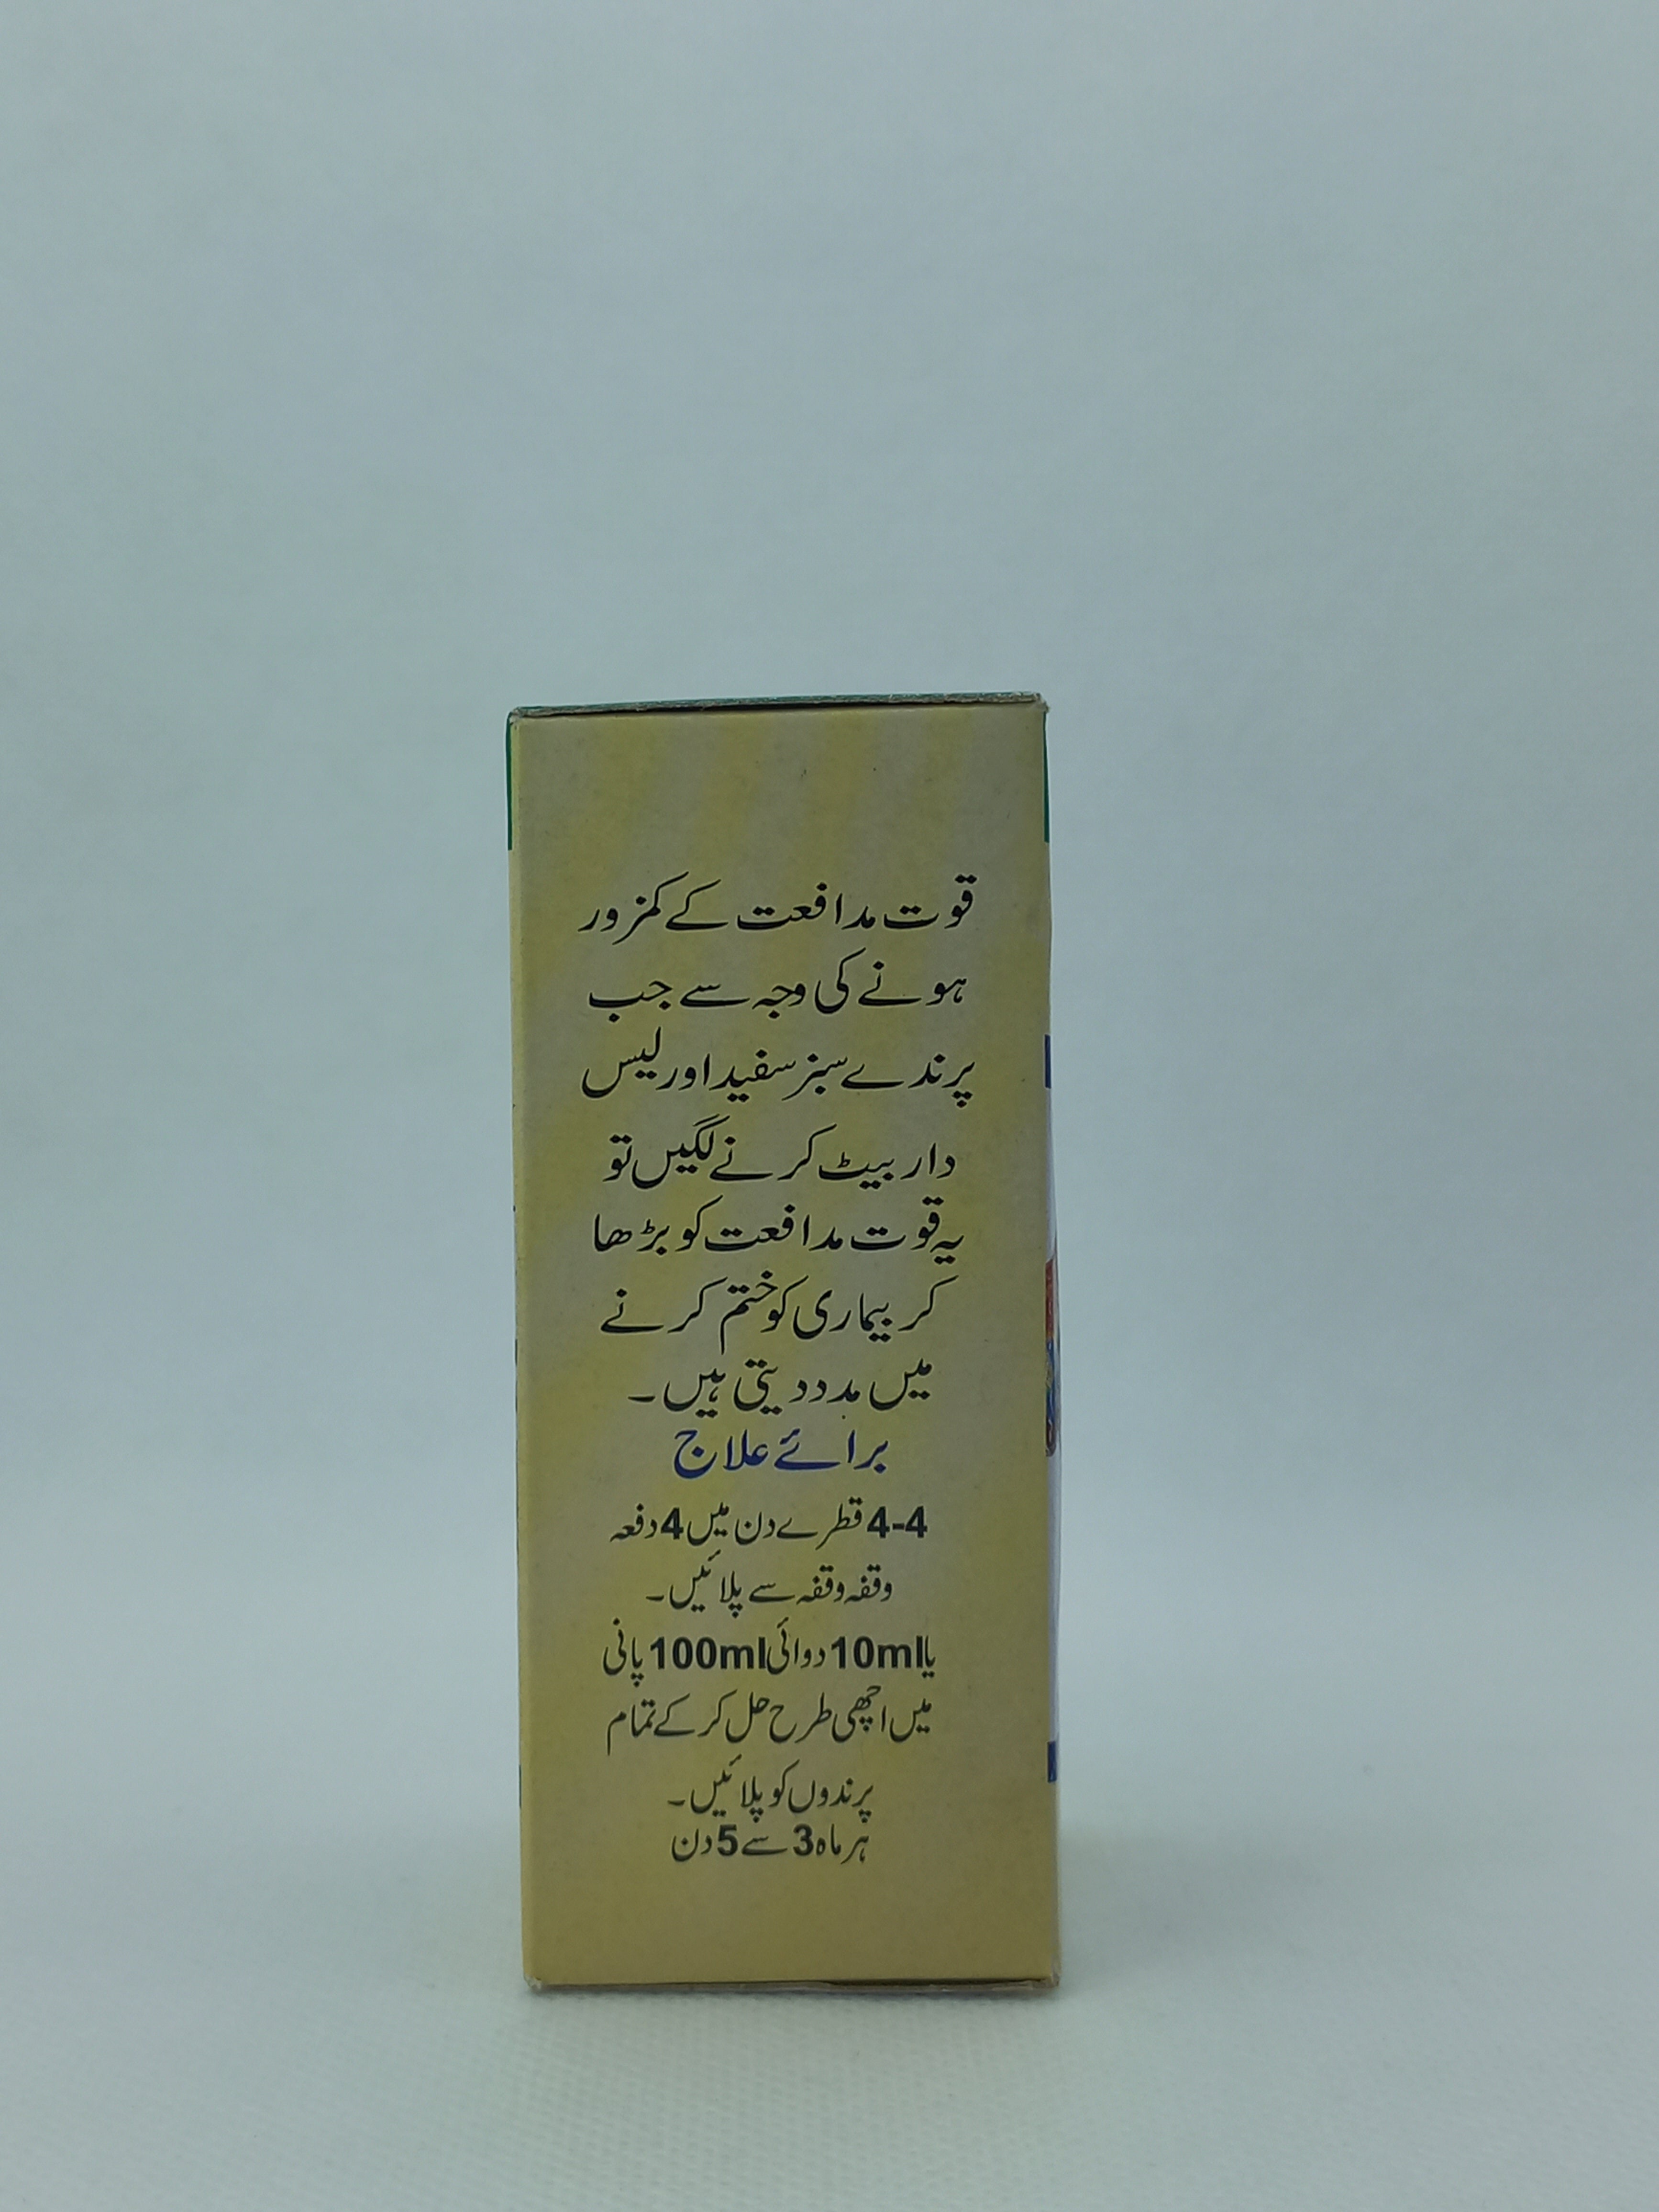 قوت مدافعت کے کمزور
ہونے کی وجہ سے جب
پرندے سبز سفید اور لیس
دار بیٹ کرنے لگیں تو
یہ قوت مدافعت کو بڑھا
کر بیماری کو ختم کرنے
میں مدد دیتی ہیں۔
برائے علاج
4-4 قطرے دن میں 4 دفعہ
وقفہ وقفہ سے پلائیں۔
یا 10ml دوائی 100ml پانی
میں اچھی طرح حل کر کے تمام
پرندوں کو پلائیں۔
ہر ماہ 3 سے 5 دن